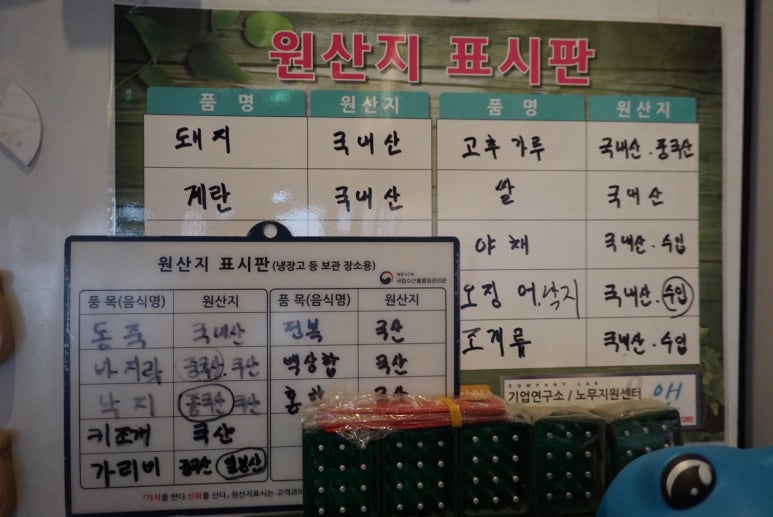 원산지 표시판
품 명 원산지 품 명 원산지
돼지 국내산 고추가루 국내산 . 중국산
계란 국내산 쌀 국내산
야채 국내산 . 수입
오징어, 낙지 국내산 . 수입
조개류 국내산 . 수입
COMPANY LAB
기업연구소 / 노무지원센터
원산지 표시판(냉장고 등 보관 장소용)
국립수산물품질관리원
품 목(음식명) 원산지 품 목(음식명) 원산지
국내산 전복 국산
바지락 중국산. 국산 백상합 국산
낙지 중국산 국산 홍합 국산
키조개 국산
가리비 중국산 일본산
「가치를 판다 신뢰를 산다」 원산지표시는 고객과의